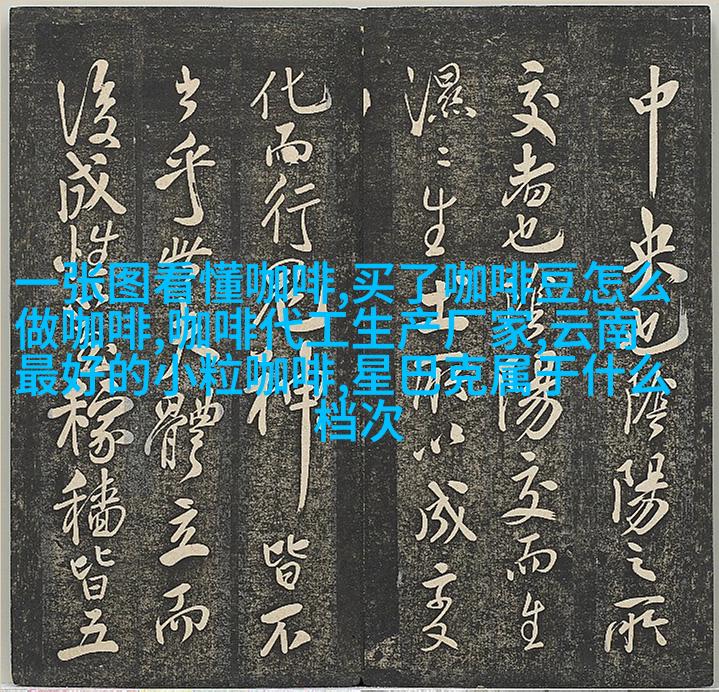 一张图看懂咖啡,买了咖啡豆怎么
做咖啡,咖啡代工生产厂家,云南
最好的小粒咖啡,星巴克属于什么
档次
中央也陰陽之所
交者也陰陽交而生
濕〻生土所以成變
化而行鬼神皆不
乎體立而
後成性稼穡皆五